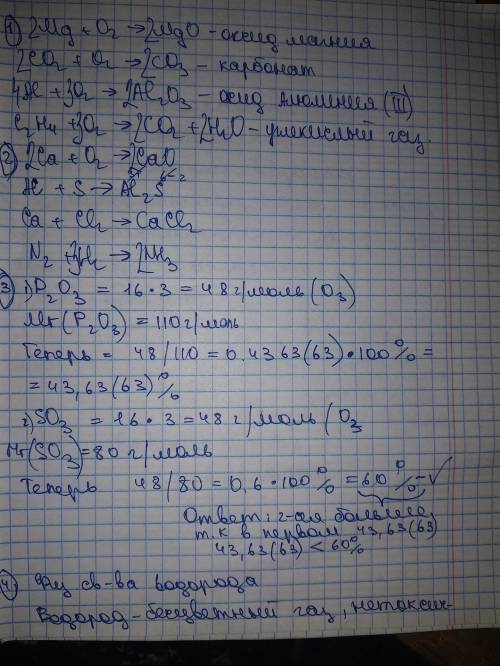 1) 2Mg + O2 → 2MgO - оксид магния
2CO2 + O2 → 2CO3 - карбонат
4Al + 3O2 → 2Al2O3 - оксид алюминия (III)
C2H4 + 3O2 → 2CO2 + 2H2O - углекислый газ.
2) 2Ca + O2 → 2CaO
Al + S → Al2S
Ca + Cl2 → CaCl2
N2 + 3H2 → 2NH3
3) 1) P2O3 = 16 · 3 = 48 г/моль (O3)
Mr (P2O3) = 110 г/моль
Теперь = 48 / 110 = 0,4363(63) · 100% =
= 43,63(63)%
2) SO3 = 16 · 3 = 48 г/моль (O3
Mr(SO3) = 80 г/моль
Теперь 48 / 80 = 0,6 · 100% = 60% - ✓
Ответ: 2-ая больше,
т.к в первом 43,63(63)
43,63(63) < 60%
4) Физ св-ва водорода
Водород - бесцветный газ, нетоксич-